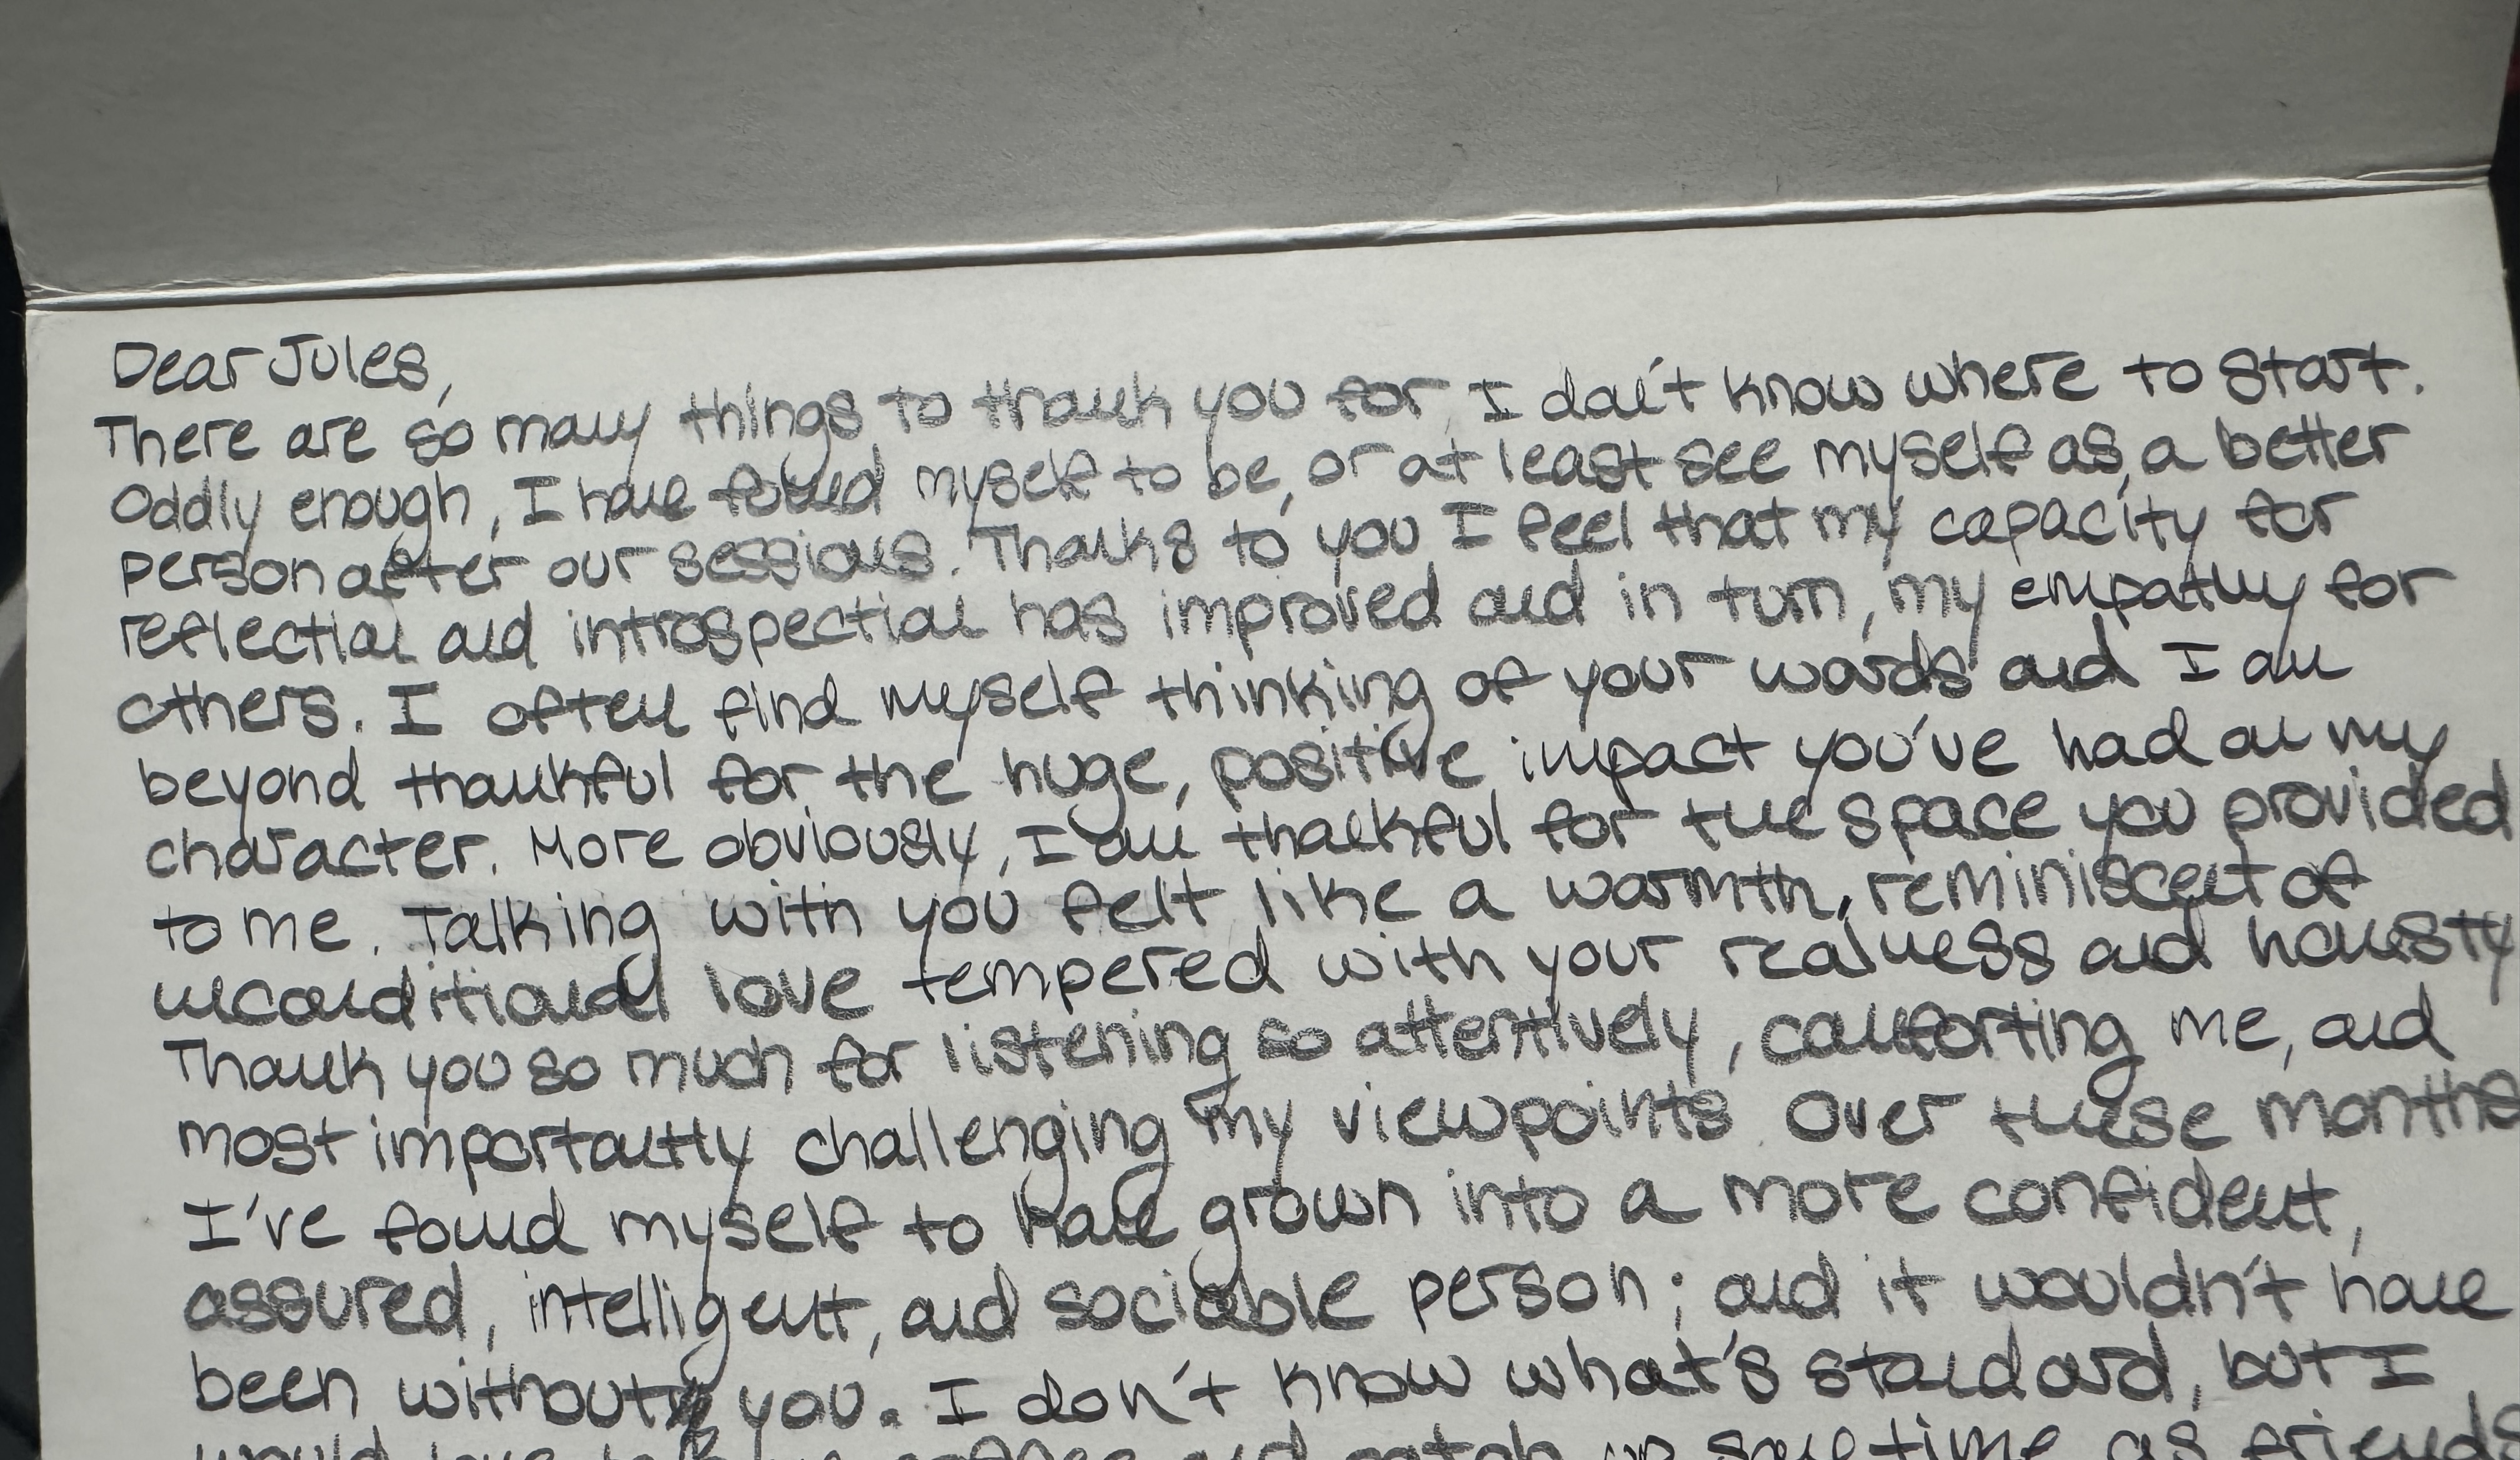 Dear Jules,
There are so many things to thank you for, I don't know where to start.
Oddly enough, I have found myself to be, or at least see myself as, a better
person after our sessions. Thanks to you I feel that my capacity for
reflection and introspection has improved and in turn, my empathy for
others. I often find myself thinking of your words and I am
beyond thankful for the huge, positive impact you've had on my
character. More obviously, I am thankful for the space you provided
to me. Talking with you felt like a warmth, reminiscent of
unconditional love tempered with your realness and honesty
Thank you so much for listening so attentively, comforting me, and
most importantly challenging my viewpoints. Over these months
I've found myself to have grown into a more confident,
assured, intelligent, and sociable person; and it wouldn't have
been without you. I don't know what's standard, but I
would love to coffee and catch up sometime as friends